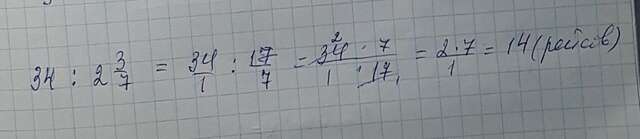 34 : 2 3/7 = 34/1 : 17/7 = 34 2 · 7 / 1 · 17 1 = 2·7/1 = 14 (рейсов)